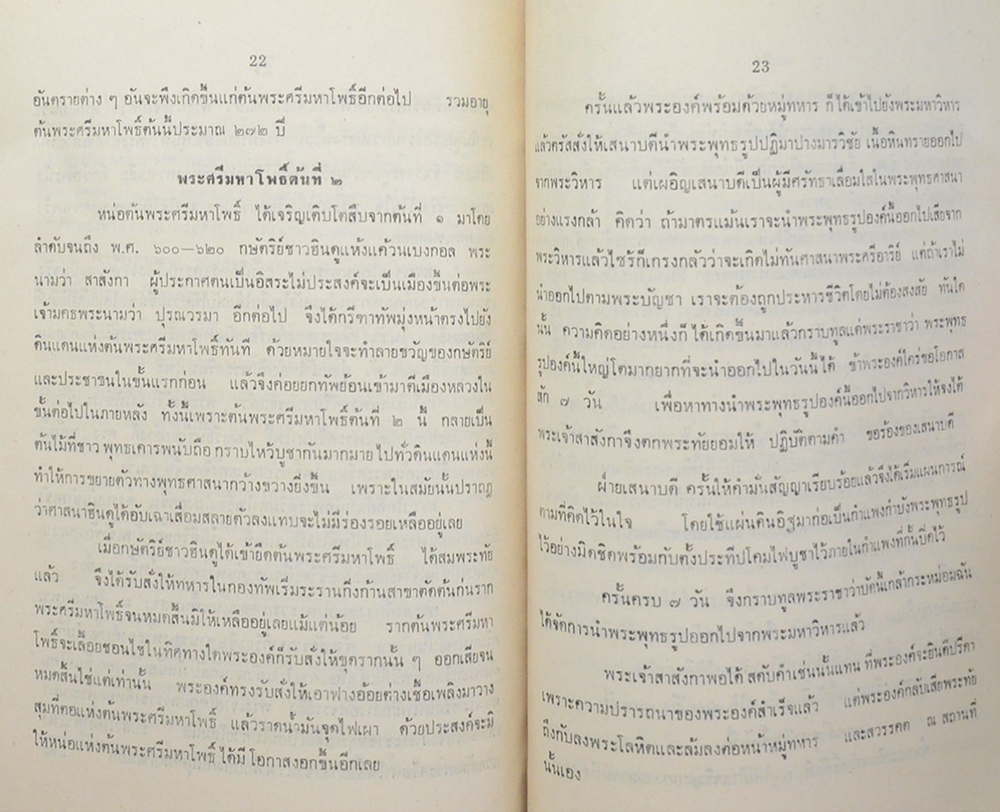 22
อันตรายต่าง ๆ อันจะพึงเกิดขึ้นแก่ต้นพระศรีมหาโพธิ์อีกต่อไป รวมอายุ
ต้นพระศรีมหาโพธิ์ต้นนี้ประมาณ ๒๗๒ ปี
พระศรีมหาโพธิ์ต้นที่ ๒
หน่อต้นพระศรีมหาโพธิ์ ได้เจริญเติบโตสืบจากต้นที่ ๑ มาโดย
ลำดับจนถึง พ.ศ. ๖๐๐—๖๒๐ กษัตริย์ชาวฮินดูแห้งแค้วนเบงกอล พระ
นามว่า สาสังกา ผู้ประกาศตนเป็นอิสระไม่ประสงค์จะเป็นเมืองขึ้นต่อพระ
เจ้ามคธพระนามว่า ปุรณวรมา อีกต่อไป จึงได้กรีฑาทัพมุ่งหน้าตรงไปยัง
ดินแดนแห่งต้นพระศรีมหาโพธิ์ทันที ด้วยหมายใจจะทำลายขวัญของกษัตริย์
และประชาชนในขั้นแรกก่อน แล้วจึงค่อยยกทัพย้อนเข้ามาตีเมืองหลวงใน
ขั้นต่อไปในภายหลัง ทั้งนี้เพราะต้นพระศรีมหาโพธิ์ต้นที่ ๒ นี้ กลายเป็น
ต้นไม้ที่ชาว พุทธเคารพนับถือ กราบไหว้บูชากันมากมาย ไปทั่วดินแดนแห่งนี้
ทำให้การขยายตัวทางพุทธศาสนากว้างขวางยิ่งขึ้น เพราะในสมัยนั้นปราถฎ
ว่าศาสนาฮินดูได้อับเฉาเสื่อมสลายตัวลงแทบจะไม่มีร่องรอยเหลืออยู่เลย
เมื่อกษัตริย์ชาวฮินดูได้เข้ายึดต้นพระศรีมหาโพธิ์ ได้สมพระทัย
แล้ว จึงได้รับสั่งให้ทหารในกองทัพเริ่มระรานกิ่งก้านสาขาตัดต้นก่นราก
พระศรีมหาโพธิ์จนหมดสิ้นมิให้เหลืออยู่เลยแม้แต่น้อย รากต้นพระศรีมหา
โพธิ์จะเลื้อยชอนไชในทิศทางใดพระองค์ก็รับสั่งให้ขุดรากนั้น ๆ ออกเสียจน
หมดสิ้นใช่แต่เท่านั้น พระองค์ทรงรับสั่งให้เอาฟางอ้อยต่างเชื้อเพลิงมาวาง
สุมที่ตอแห่งต้นพระศรีมหาโพธิ์ แล้วราดน้ำมันจุดไฟเผา ด้วยประสงค์จะมิ
ให้หน่อแห่งต้นพระศรีมหาโพธิ์ ได้มี โอกาสงอกขึ้นอีกเลย
23
ครั้นแล้วพระองค์พร้อมด้วยหมู่ทหาร ก็ได้เข้าไปยังพระมหาวิหาร
แล้วตรัสสั่งให้เสนาบดีนำพระพุทธรูปปฏิมาปางมารวิชัย เนื้อหินทรายออกไป
จากพระวิหาร แต่เผอิญเสนาบดีเป็นผู้มีศรัทธาเลื่อมใสในพระพุทธศาสนา
อย่างแรงกล้า คิดว่า ถ้ามาตรแม้นเราจะนำพระพุทธรูปองค์นี้ออกไปเสียจาก
พระวิหารแล้วไซร้ก็เกรงกลัวว่าจะเกิดไม่ทันศาสนาพระศรีอาริย์ แต่ถ้าเราไม่
นำออกไปตามพระบัญชา เราจะต้องถูกประหารชีวิตโดยไม่ต้องสงสัย ทันใด
นั้น ความคิดอย่างหนึ่งก็ ได้เกิดขึ้นมาแล้วกราบทูลแด่พระราชาว่า พระพุทธ
รูปองค์นี้ใหญ่โตมากยากที่จะนำออกไปในวันนี้ได้ ข้าพระองค์ใคร่ขอโอกาส
สัก ๗ วัน เพื่อหาทางนำพระพุทธรูปองค์นี้ออกไปจากวิหารให้จงได้
พระเจ้าสาสังกาจึงตกพระทัยยอมให้ ปฏิบัติตามคำ ขอร้องของเสนาบดี
ฝ่ายเสนาบดี ครั้นให้คำมั่นสัญญาเรียบร้อยแล้วจึงได้เริ่มแผนการณ์
ตามที่คิดไว้ในใจ โดยใช้แผ่นดินอิฐมาก่อเป็นกำแพงกำบังพระพุทธรูป
ไว้อย่างมิดชิดพร้อมกับตั้งประทีปโคมไฟบูชาไว้ภายในกำแพงที่กั้นปิดไว้
ครั้นครบ ๗ วัน จึงกราบทูลพระราชาว่าบัดนี้เกล้ากระหม่อมฉัน
ได้จัดการนำพระพุทธรูปออกไปจากพระมหาวิหารแล้ว
พระเจ้าสาสังกาพอได้ สดับคำเช่นนั้นแทน ที่พระองค์จะยินดีปรีดา
เพราะความปรารถนาของพระองค์สำเร็จแล้ว แต่พระองค์กลับเสียพระทัย
ถึงกับลงพระโลหิตและล้มลงต่อหน้าหมู่ทหาร และสวรรคต ณ สถานที่
นั้นเอง